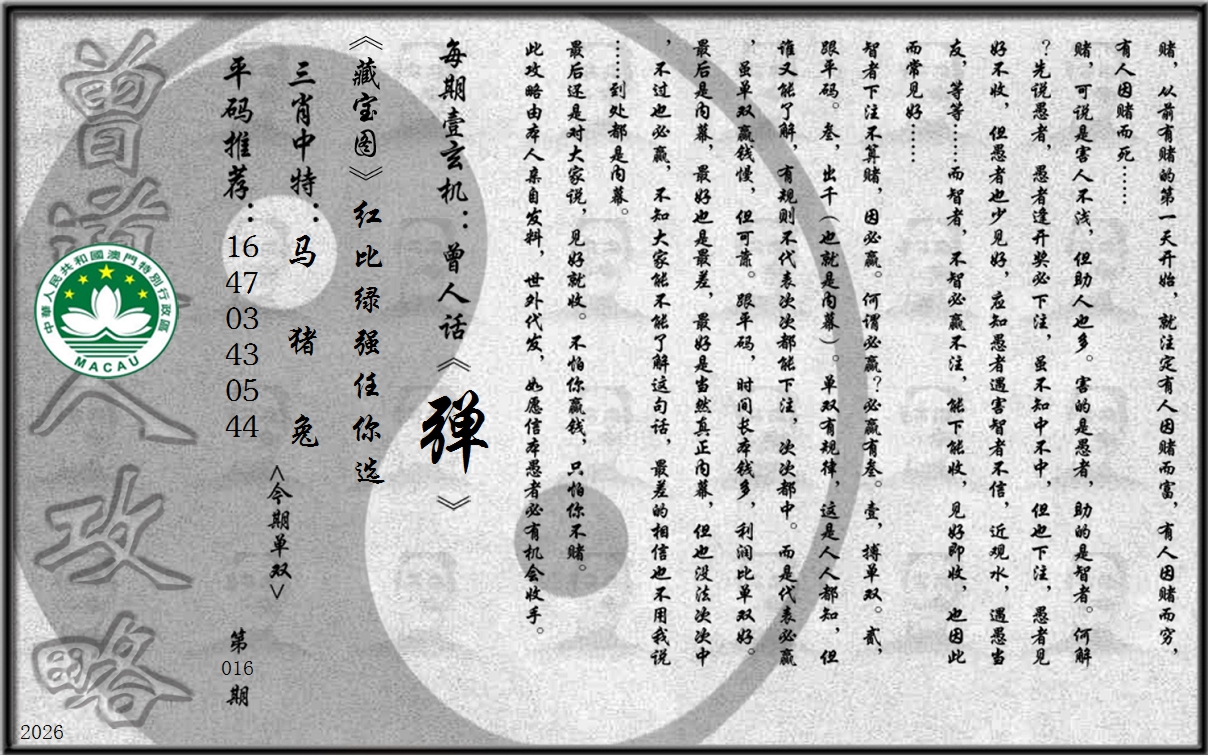 赌，从前有赌的第一天开始，就注定有人因赌而富，有人因赌而穷，
有人因赌而死……
赌，可说是害人不浅，但助人也多。害的是愚者，助的是智者。何解
？先说愚者，愚者逢开奖必下注，虽不知中不中，但也下注，愚者见
好不收，但愚者也少见好，应知愚者遇害智者不信，近观水，遇愚当
友，等等……而智者，不智必赢不注，能下能收，见好即收，也因此
而常见好……
智者下注不算赌，因必赢。何谓必赢？必赢有叁。壹，搏单双。贰，
跟平码。叁，出千（也就是内幕）。单双有规律，这是人人都知，但
谁又能了解，有规则不代表次次都能下注，次次都中。而是代表必赢
，虽单双赢钱慢，但可靠。跟平码，时间长本钱多，利润比单双好。
最后是内幕，最好也是最差，最好是当然真正内幕，但也没法次次中
，不过也必赢，不知大家能不能了解这句话，最差的相信也不用我说
……到处都是内幕。
最后还是对大家说，见好就收。不怕你赢钱，只怕你不赌。
此攻略由本人亲自发料，世外代发，如愿信本愚者必有机会收手。
每期壹玄机：曾人话《弹》
《藏宝图》红比绿强任你选
三肖中特：马 猪 兔
<今期单双>
平码推荐：16 47 03 43 05 44
第016期
曾道人攻略
中華人民共和國澳門特別行政區
MACAU
2026